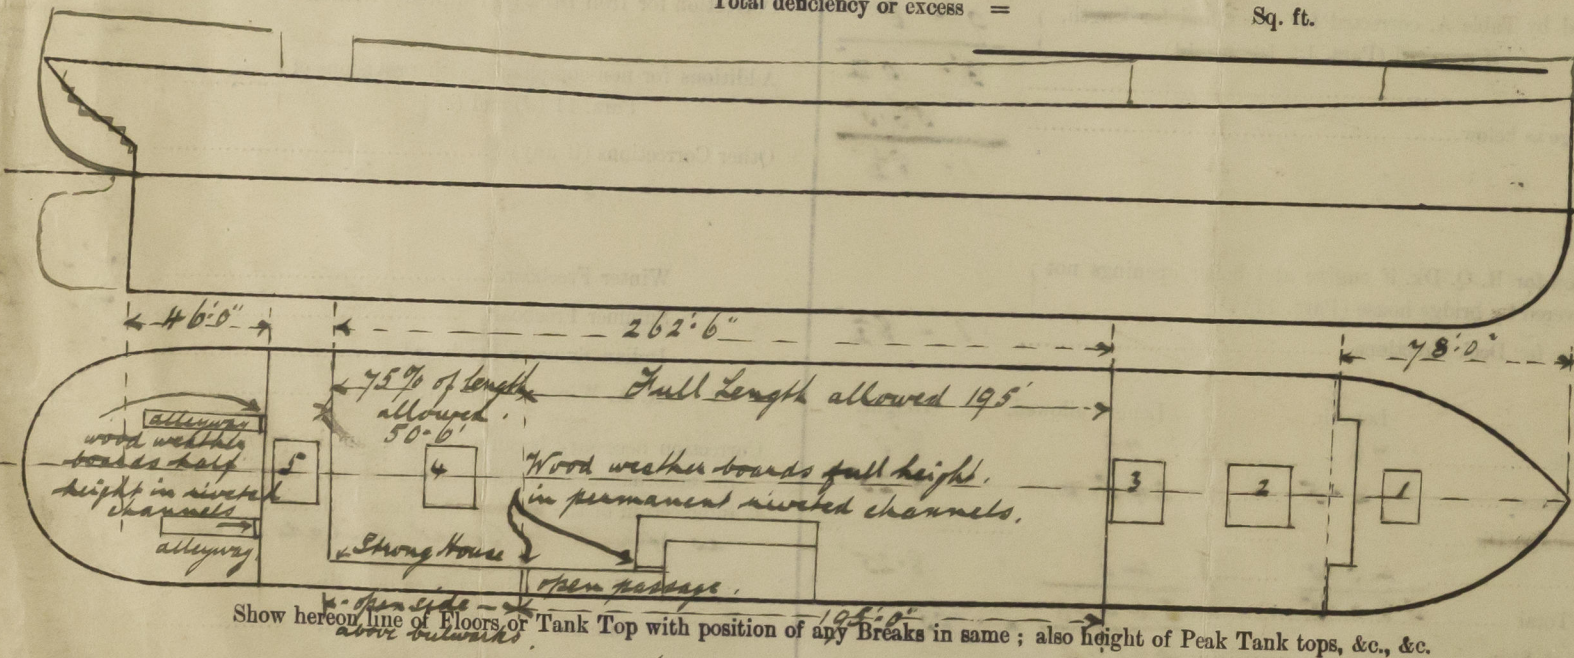 Total deficiency or excess =
Sq. ft.
46'.0"
262'.6"
78'.0"
75% of length
allowed.
50.6'
Full Length allowed 195'
alleyway
wood weather
boards half
height in riveted
channels
alleyway.
5
4
3
2
1
Wood weather boards full height.
in permanent riveted channels.
Strong House
open passage.
open side
above bulwarks.
195'.0"
Show hereon line of Floors or Tank Top with position of any Breaks in same ; also height of Peak Tank tops, &c., &c.